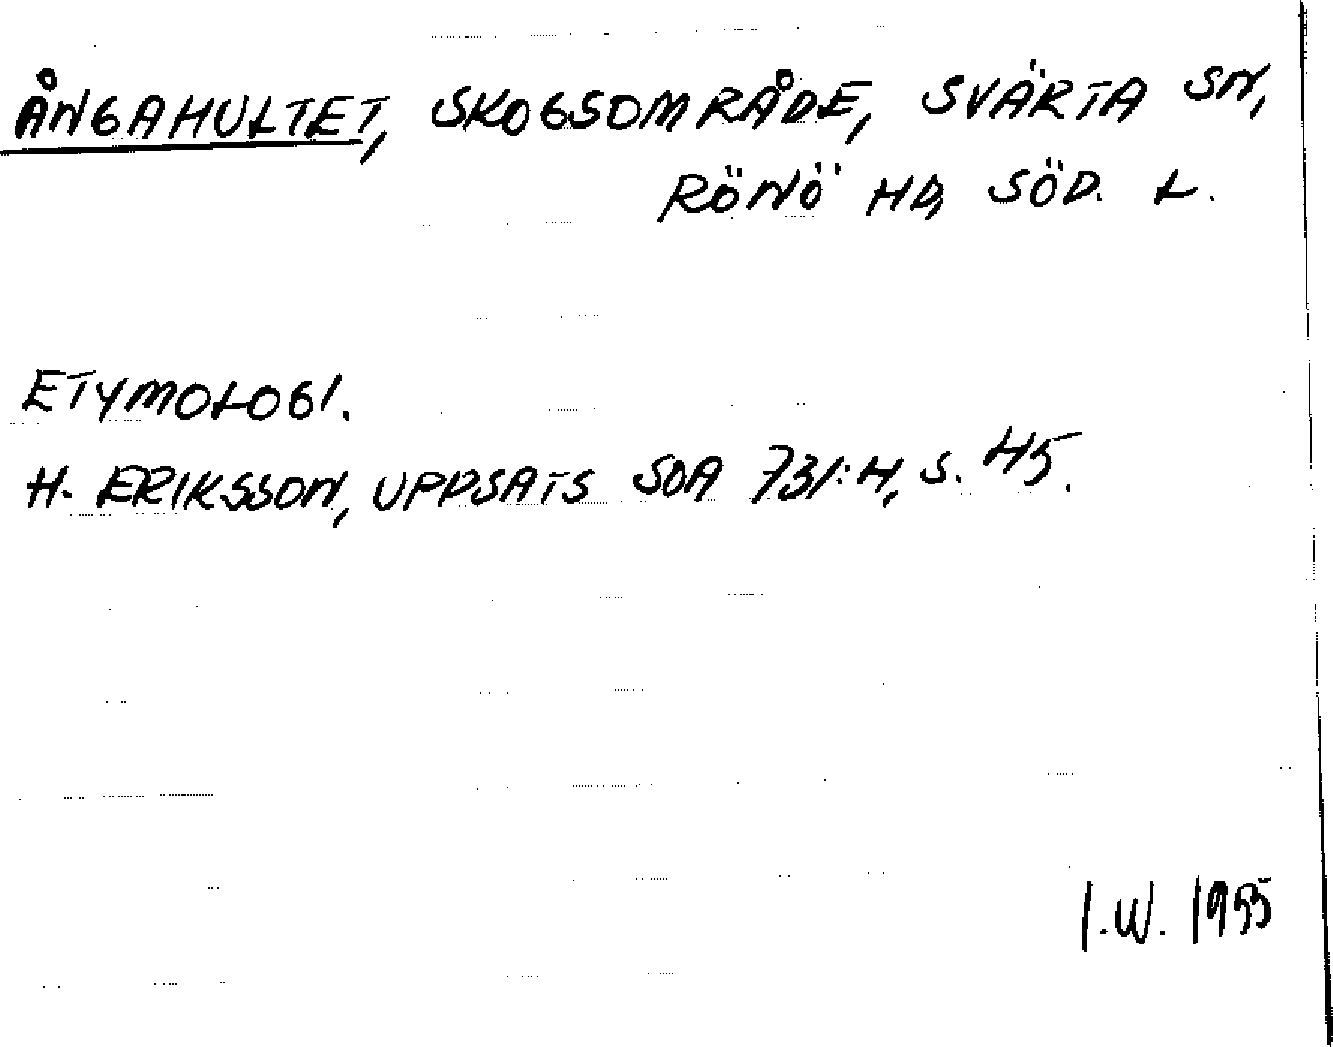 ÅNGAHULTET, SKOGSOMRÅDE, SVÄRTA SN,
RÖNÖ HD, SÖD. L.
ETYMOLOGI.
H. ERIKSSON, UPPSATS SOA 731:H, S. 45.
I.W. 1955